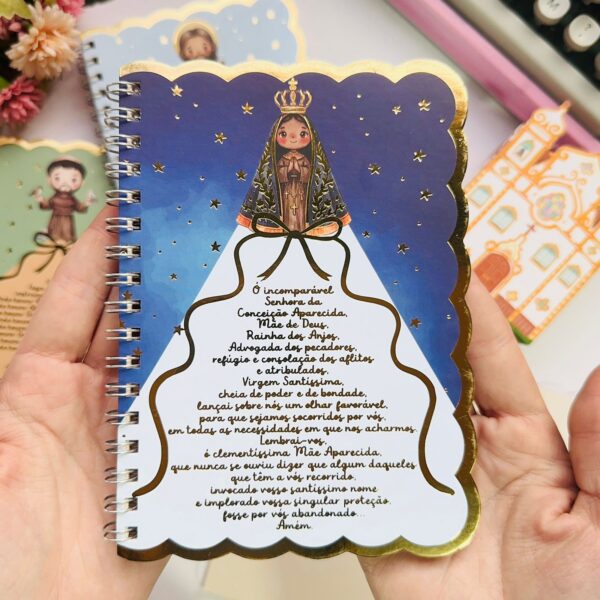 Ó incomparável
Senhora da
Conceição Aparecida,
Mãe de Deus,
Rainha dos Anjos,
Advogada dos pecadores,
refúgio e consolação dos aflitos
e atribulados,
Virgem Santíssima,
cheia de poder e de bondade,
lançai sobre nós um olhar favorável,
para que sejamos socorridos por vós,
em todas as necessidades em que nos acharmos.
Lembrai-vos,
é clementíssima Mãe Aparecida,
que nunca se ouviu dizer que algum daqueles
que têm a vós recorrido,
invocado vosso santíssimo nome
e implorado vossa singular proteção,
fosse por vós abandonado...
Amém.